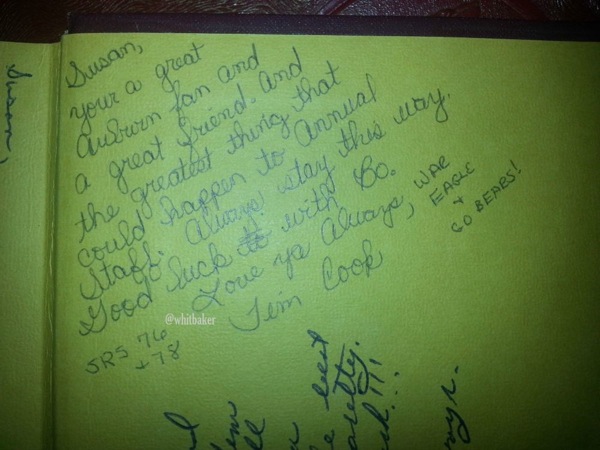 Susan,
your a great
Auburn fan and
a great friend. and
the greatest thing that
could happen to annual
Staff. Always stay this way.
Good luck with Bo.
Love ya Always,
Tim Cook
WAR
EAGLE
+
GO BEARS!
SRS 76
+ 78
@whitbaker
Susan,